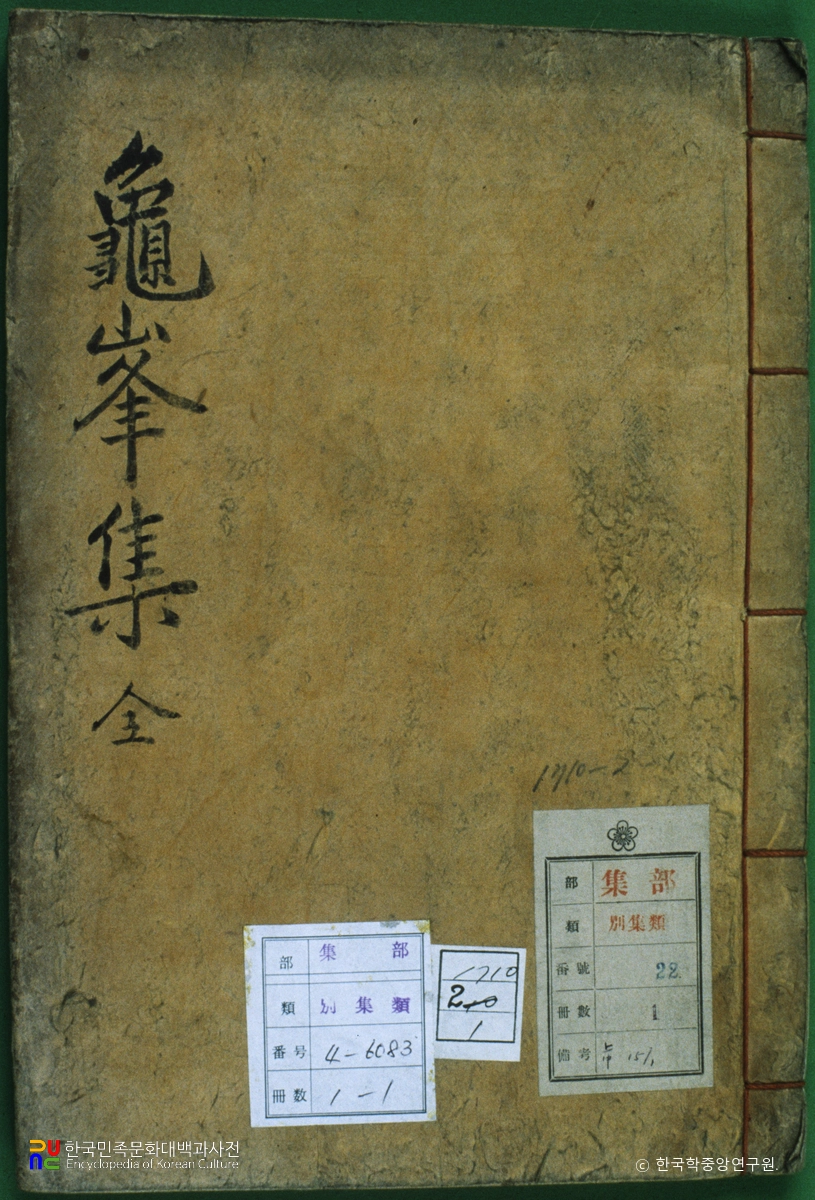 龜峯集 全
1710-2
部 集部
類 別集類
番號 22
冊數 1
備考
部 集部
類 別集類
番号 4-6083
冊数 1-1
1710
1
한국민족문화대백과사전
Encyclopedia of Korean Culture
© 한국학중앙연구원